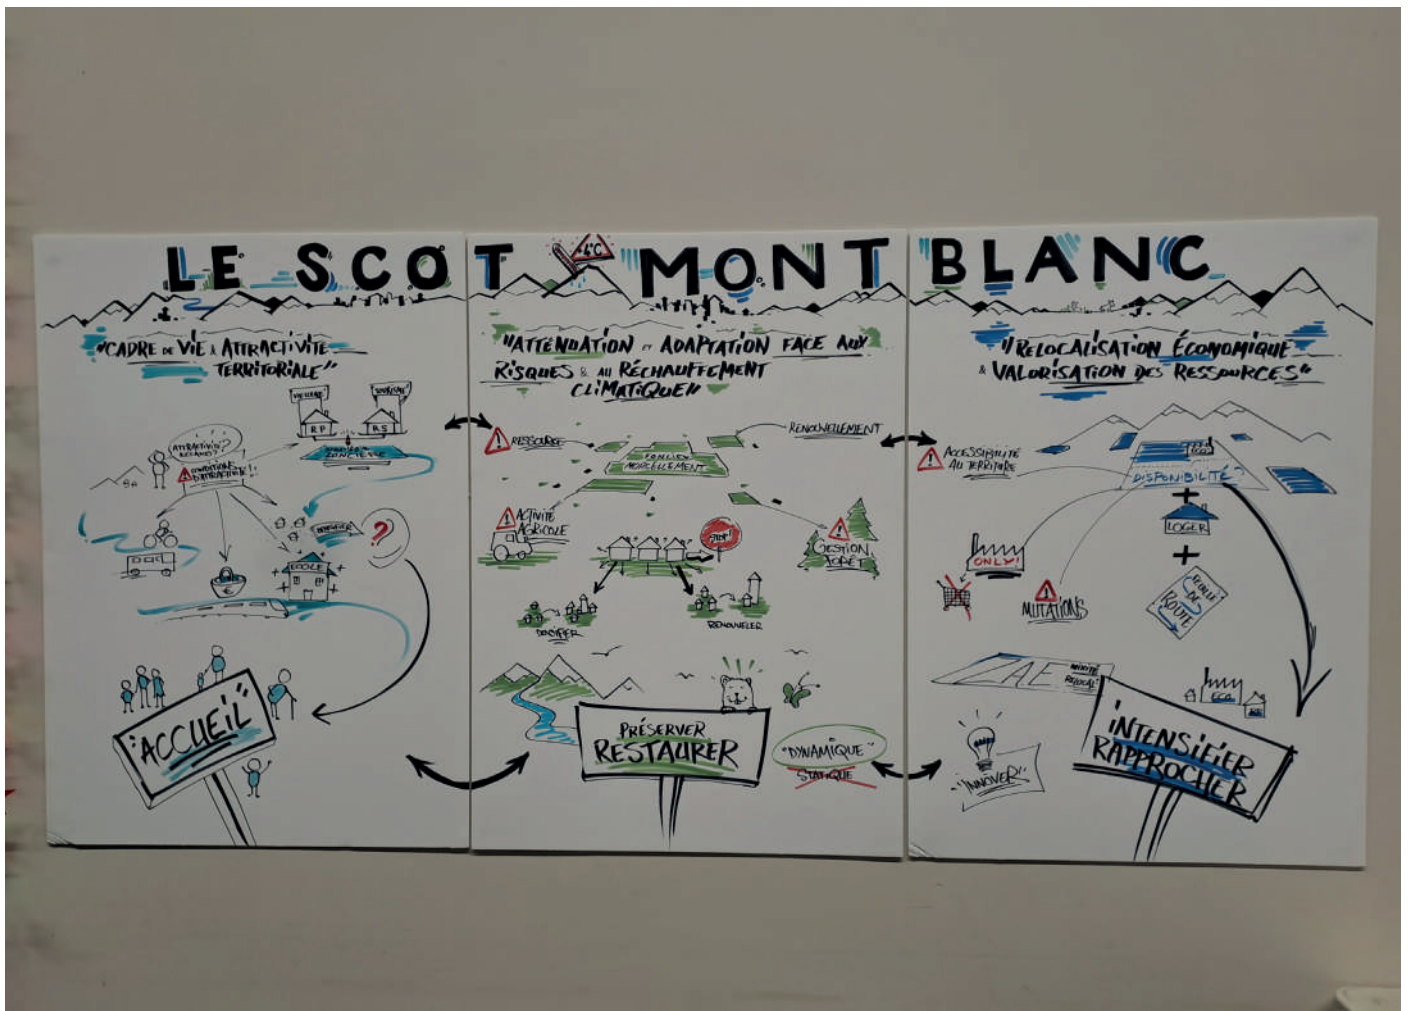 LE SCOT MONT BLANC
4°C
"CADRE DE VIE & ATTRACTIVITÉ
TERRITORIALE"
RP
RS
ATTRACTIVITÉ?
CONDITIONS
D'ATTRACTIVITÉ!!
?
ÉCOLE
€
"ACCUEIL"
"ATTÉNUATION ET ADAPTATION FACE AUX
RISQUES & AU RÉCHAUFFEMENT
CLIMATIQUE"
RESSOURCE
RENOUVELLEMENT
FONCIER
MORCELLEMENT
ACTIVITÉ
AGRICOLE
STOP!
GESTION
FORÊT
DENSIFIER
RENOUVELER
PRÉSERVER
RESTAURER
"DYNAMIQUE"
STATIQUE
"RELOCALISATION ÉCONOMIQUE
& VALORISATION DES RESSOURCES"
ACCESSIBILITÉ
AU TERRITOIRE
ECO
DISPONIBILITÉ?
+
LOGER
+
FEUILLE
DE
ROUTE
ONLY!
MUTATIONS
ZAE
MIXITÉ
RELOCAL'
ECO
"INNOVER"
INTENSIFIER
RAPPROCHER